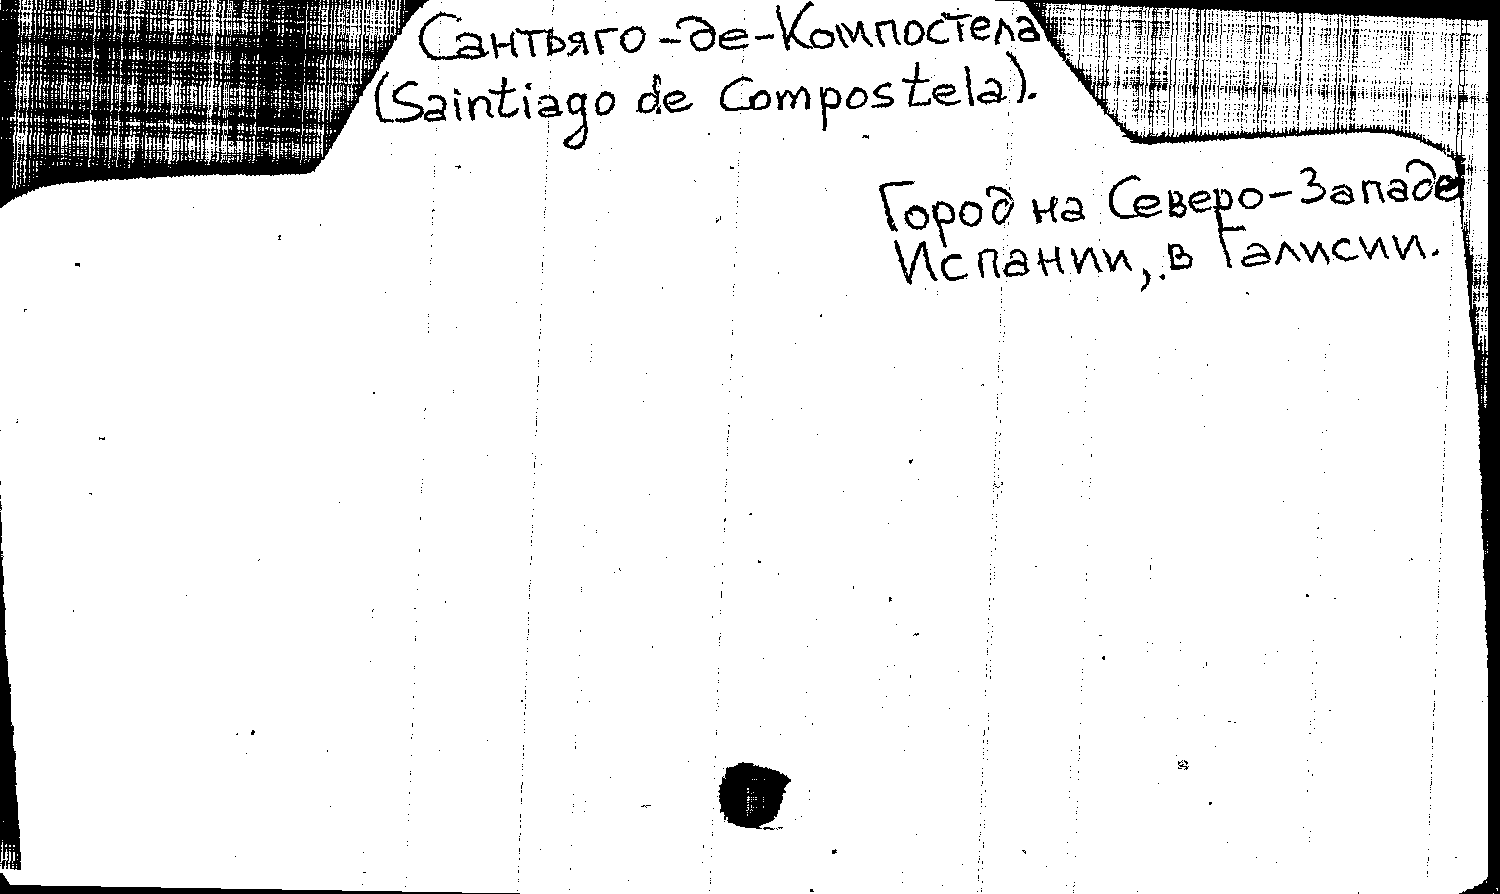 Сантьяго-де-Компостела
(Saintiago de Compostela).
Город на Северо-Западе
Испании, в Галисии.